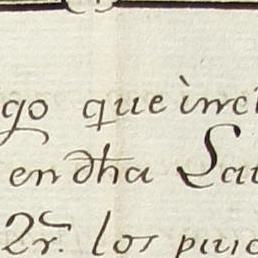 go que incl
en dha Lat
2r. los puic